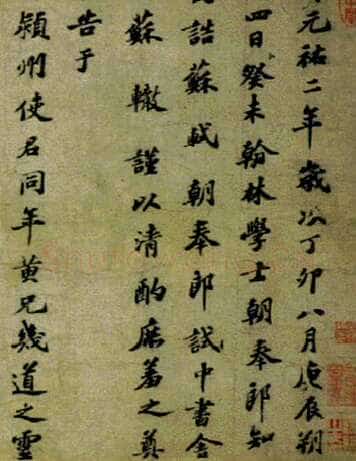 元祐二年歲次丁卯八月庚辰朔
四日癸未翰林學士朝奉郎知
誥蘇軾朝奉郎試中書舍
蘇轍謹以清酌庶羞之奠
告于
潁州使君同年黄兄幾道之靈